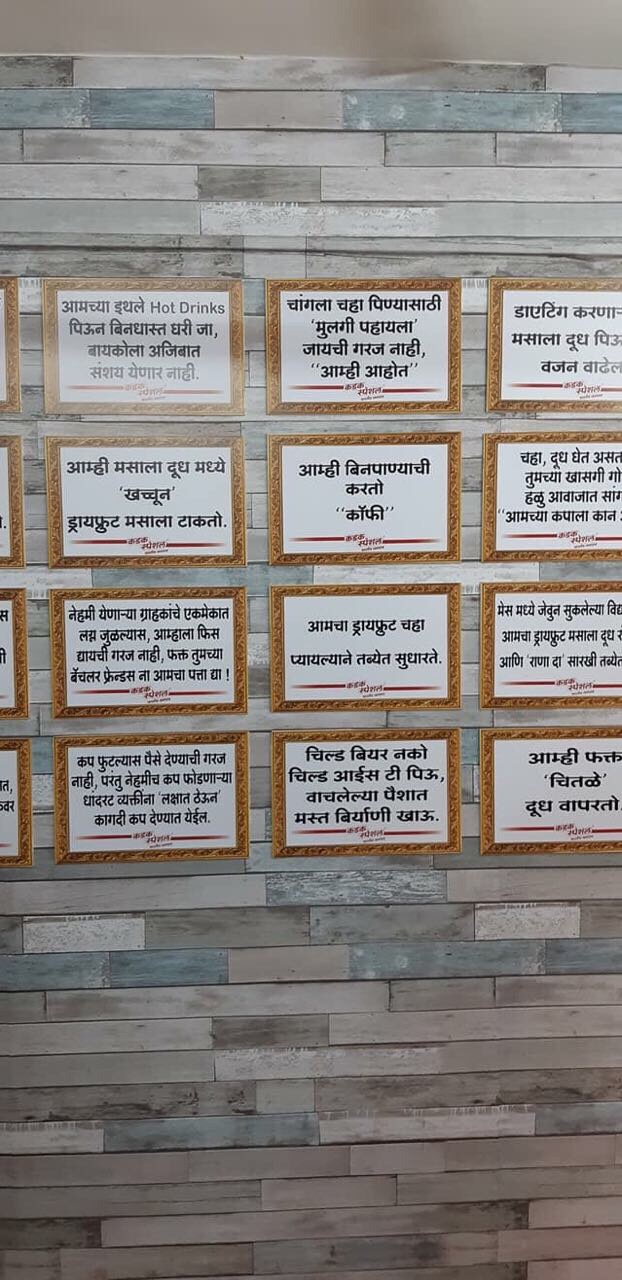 आमच्या इथले Hot Drinks
पिऊन बिनधास्त घरी जा,
बायकोला अजिबात
संशय येणार नाही.
कडक स्पेशल
चांगला चहा पिण्यासाठी
'मुलगी पहायला'
जायची गरज नाही,
''आम्ही आहोत''
कडक स्पेशल
डाएटिंग
मसाला दूध
वजन
कडक स्पेशल
आम्ही मसाला दूध मध्ये
'खच्चून'
ड्रायफ्रुट मसाला टाकतो.
कडक स्पेशल
आम्ही बिनपाण्याची
करतो
''कॉफी''
कडक स्पेशल
चहा, दूध घेत
तुमच्या खासगी
हळु आवाजात
''आमच्या कपाला कान
कडक स्पेशल
नेहमी येणाऱ्या ग्राहकांचे एकमेकात
लग्न जुळल्यास, आम्हाला फिस
द्यायची गरज नाही, फक्त तुमच्या
बॅचलर फ्रेन्डस ना आमचा पत्ता द्या !
कडक स्पेशल
आमचा ड्रायफ्रुट चहा
प्यायल्याने तब्येत सुधारते.
कडक स्पेशल
मेस मध्ये जेवुन सुकलेल्या
आमचा ड्रायफ्रुट मसाला दूध
आणि 'राणा दा' सारखी
कडक स्पेशल
कप फुटल्यास पैसे देण्याची गरज
नाही, परंतु नेहमीच कप फोडणाऱ्या
धांदरट व्यक्तींना 'लक्षात ठेऊन'
कागदी कप देण्यात येईल.
कडक स्पेशल
चिल्ड बियर नको
चिल्ड आईस टी पिऊ,
वाचलेल्या पैशात
मस्त बिर्याणी खाऊ.
कडक स्पेशल
आम्ही फक्त
'चितळे'
दूध वापरतो.
कडक स्पेशल